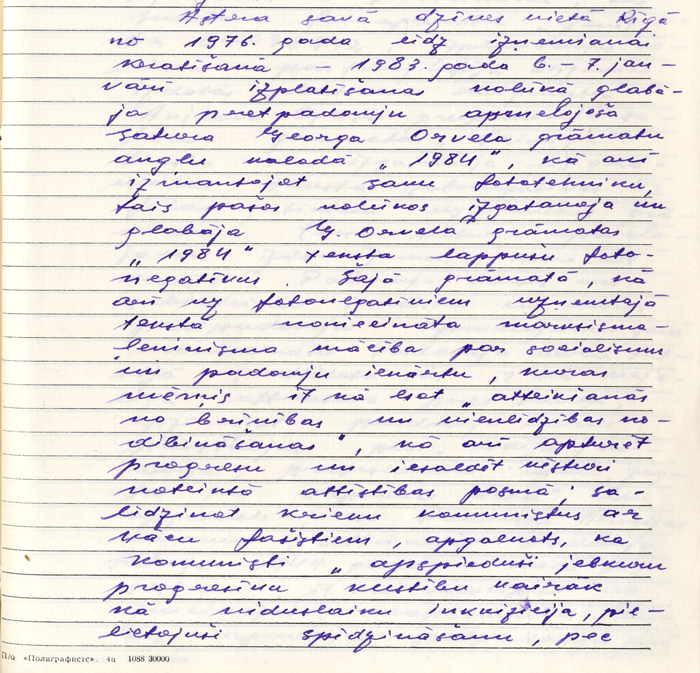 Astra savā dzīves vietā Rīgā
no 1976. gada līdz izņemšanai
kratīšanā – 1983. gada 6. – 7. jan-
vārī izplatīšanas nolūkā glabā-
ja pretpadomju apmelojoša
satura Georga Orvela grāmatu
angļu valodā „1984", kā arī
izmantojot savu fototehniku,
tais pašos nolūkos izgatavoja un
glabāja Dž. Orvela grāmatas
„1984" teksta lappušu foto-
negatīvus. Šajā grāmatā, kā
arī uz fotonegatīviem uzņemtajā
tekstā noniecināta marksisma-
ļeņinisma mācība par sociālismu
un padomju iekārtu, kuras
mērķis it kā esot „atteikšanās
no brīvības un vienlīdzības no-
dibināšanas", kā arī apturēt
progresu un iesaldēt vēsturi
noteiktā attīstības posmā; sa-
līdzinot krievu komunistus ar
vācu fašistiem, apgalvots, ka
komunisti „apspieduši jebkuru
progresīvu kustību vairāk
kā viduslaiku inkvizīcija, pie-
lietojuši spīdzināšanu, pēc
П/о «Полиграфист». 4ц 1088 30000